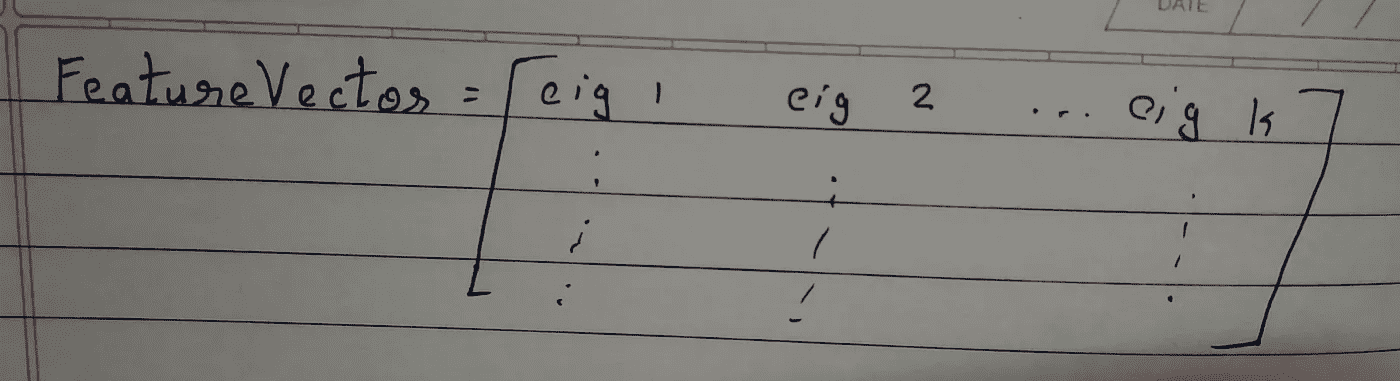 DATE
FeatureVector = [eig 1 eig 2 ... eig k]